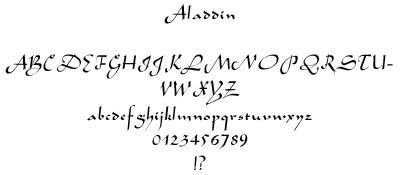 Aladdin
ABCDEFGHIJKLMNOPQRSTU-
VWXYZ
abcdefghijklmnopqrstuvwxyz
0123456789
!?